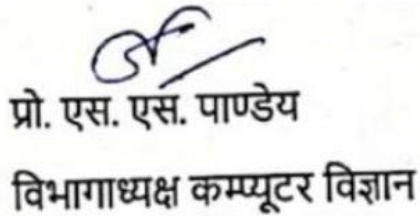 प्रो. एस. एस. पाण्डेय
विभागाध्यक्ष कम्प्यूटर विज्ञान